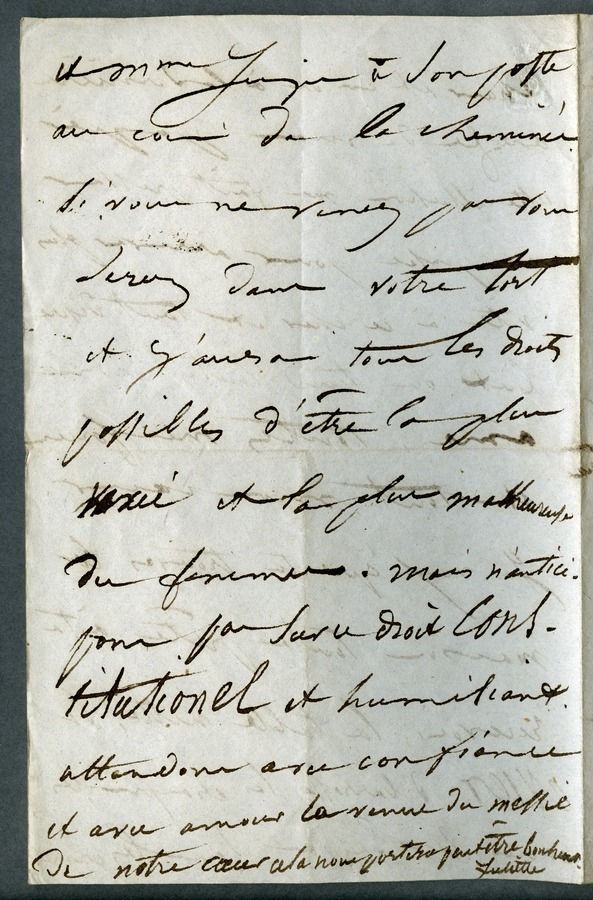 et mme Juju à son poste
au coin de la cheminée.
Si vous ne venez pas vous
serez dans votre tort
et j'aurai tous les droits
possibles d'être la plus
vexée et la plus malheureuse
des femmes. mais n'antici-
pons pas sur ce droit Cons-
titutionel et humiliant.
attendons avec confiance
et avec amour la venue du messie
de notre cœur cela nous portera peut être bonheur.
Juliette